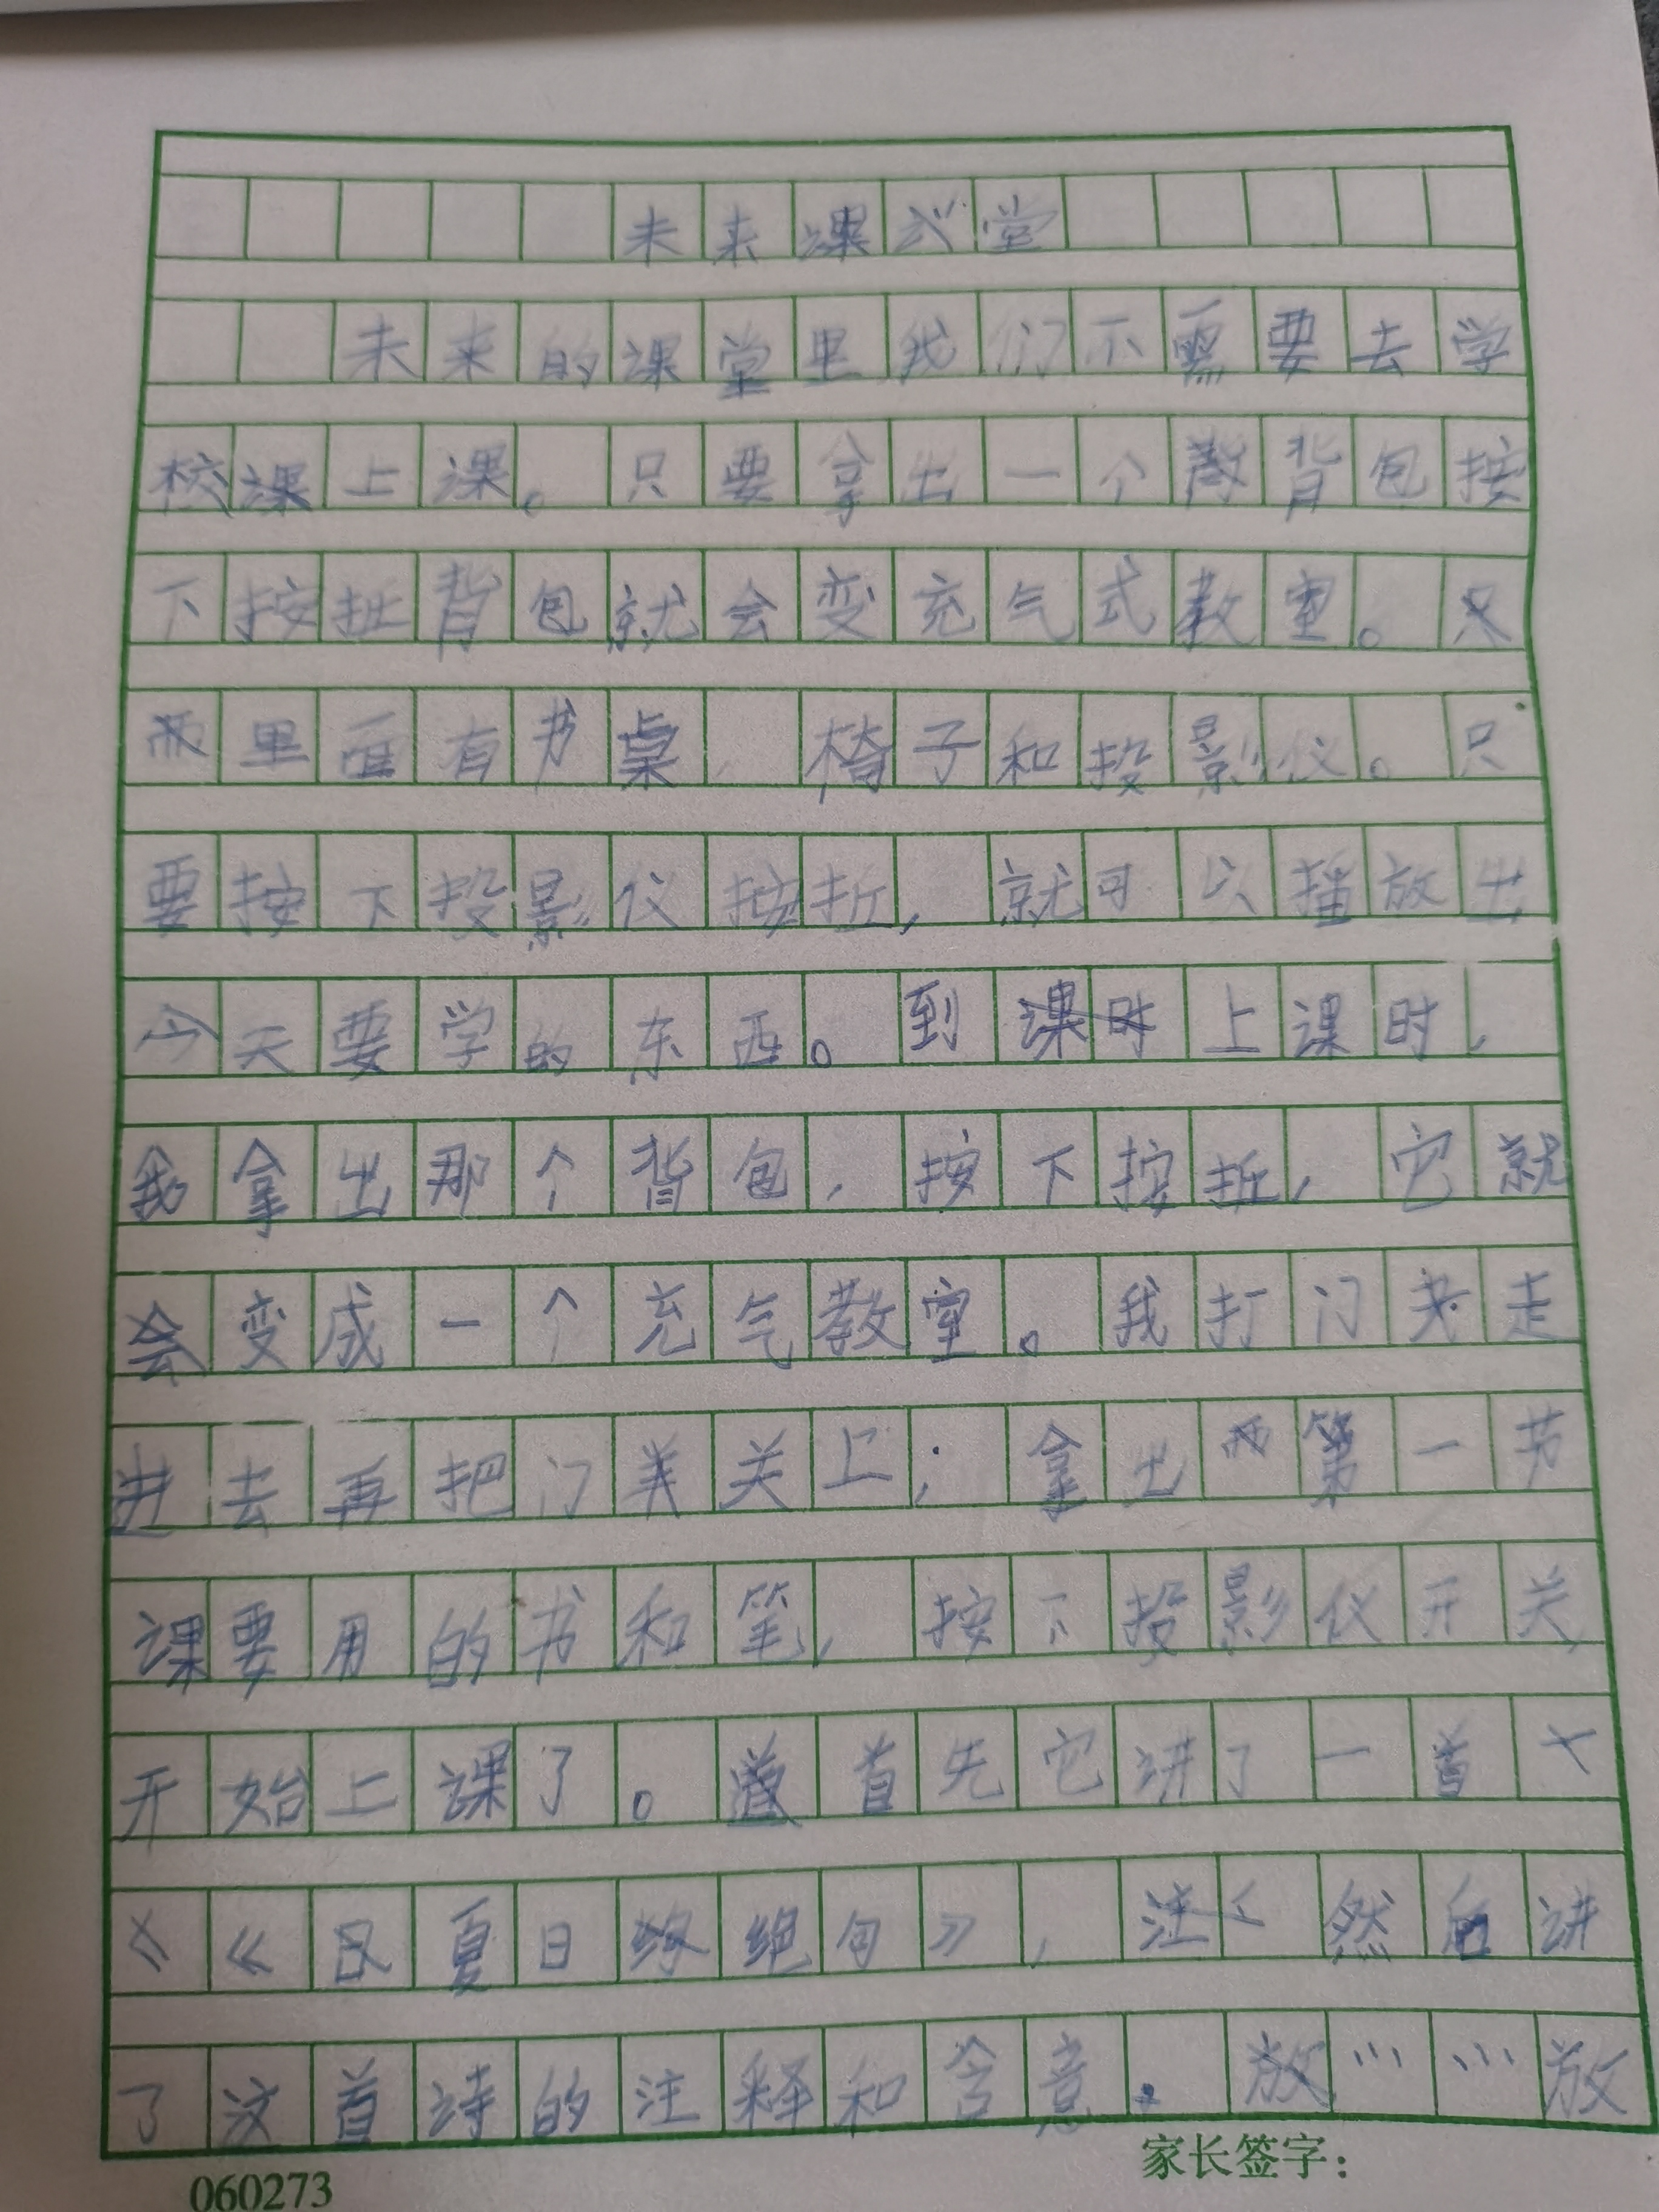 未来课堂
未来的课堂里我们不需要去学
校课上课。只要拿出一个背包按
下按扯背包就会变充气式教室。只
里面有书桌、椅子和投影仪。只
要按下投影仪按扯，就可以播放出
今天要学的东西。到课时上课时，
我拿出那个背包，按下按扯，它就
会变成一个充气教室。我打门走
进去再把门关上；拿出第一节
课要用的书和笔，按下投影仪开关，
开始上课了。首先它讲了一首
《夏日绝句》，然后讲
了这首诗的注释和含意。放……放
家长签字：
060273